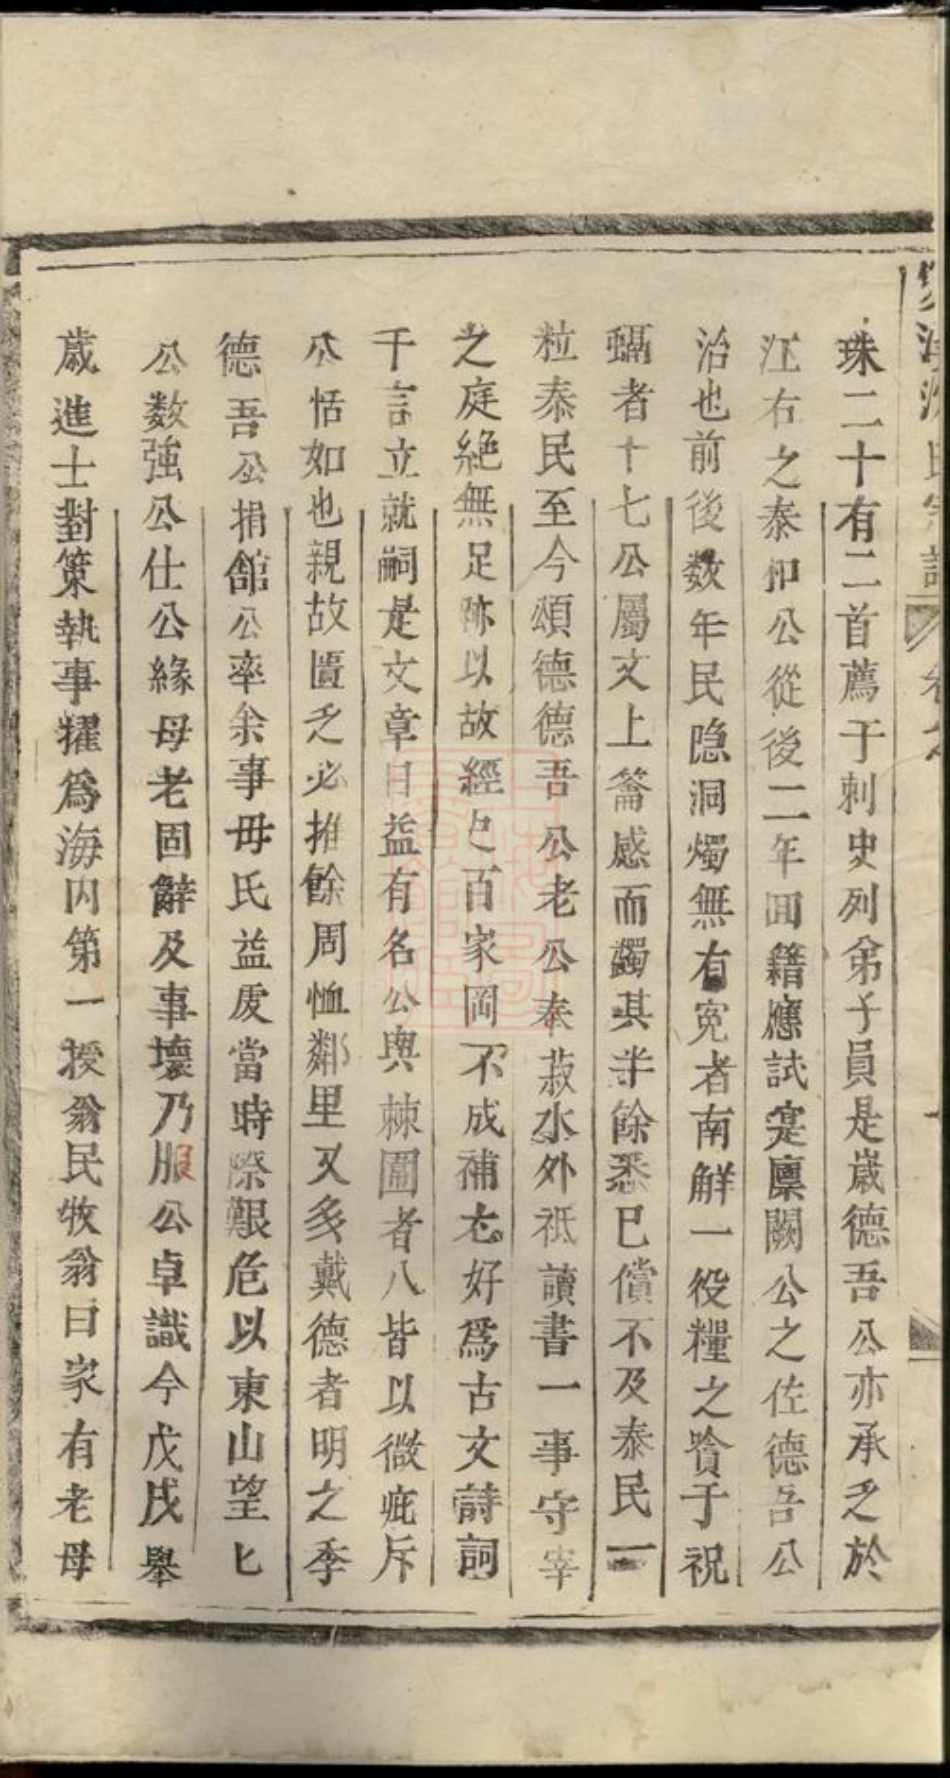 沈氏宗譜
珠二十有二首薦于刺史列弟子員是歲德吾公亦承乏於
江右之泰和公從後二年回籍應試寔廩闕公之佐德吾公
治也前後数年民隐洞燭無有寃者南觧一役糧之貲于祝
蝠者十七公屬文上籥感而蠲其半餘悉已償不及泰民一
粒泰民至今頌德德吾公老公奉菽水外祗讀書一事守宰
之庭絶無足跡以故經史百家岡不成補尤好爲古文詩詞
千言立就嗣是文章日益有名公與棘圍者八皆以微疵斥
公恬如也親故匱乏必推餘周恤鄰里又多戴德者明之季
德吾公捐舘公率余事毋氏益虔當時際艱危以東山望匕
公数強公仕公緣母老固辭及事壞乃服公卓識今戊戌舉
歲進士對策執事擢爲海内第一授翁民牧翁曰家有老母